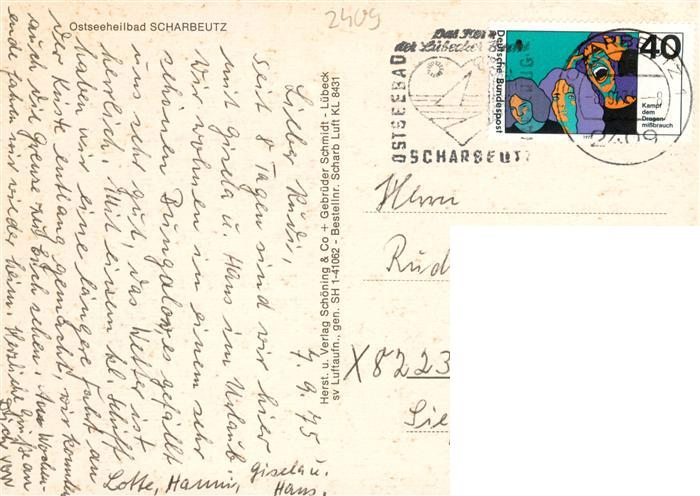 Ostseeheilbad SCHARBEUTZ
2409
7. 9. 75
Lieber Rudi,
seit 8 Tagen sind wir hier
mit Gisela u. Hans im Urlaub.
Wir wohnen in einem sehr
schönen Bungalow, es gefällt
uns sehr gut, das Wetter ist
herrlich. Mit einem kl. Schiff
haben wir eine länger Fahrt an
der Küste entlang gemacht, wir konnten
auch die Grenze zu Euch sehen. Am Wochen-
ende fahren wir wieder heim. Herzliche Grüße an
Dich von
Lotte, Hanni, Gisela u.
Hans.
Herst. u. Verlag Schöning & Co + Gebrüder Schmidt - Lübeck
sv Luftaufn., gen. SH 1-41062 - Bestellnr. Scharb Luft KL 8431
Das Herz
der Lübecker Bucht
OSTSEEBAD
SCHARBEUTZ
2409
Deutsche Bundespost
40
Kampf
dem
Drogen-
mißbrauch
Herrn
Rud
X8223
Sie